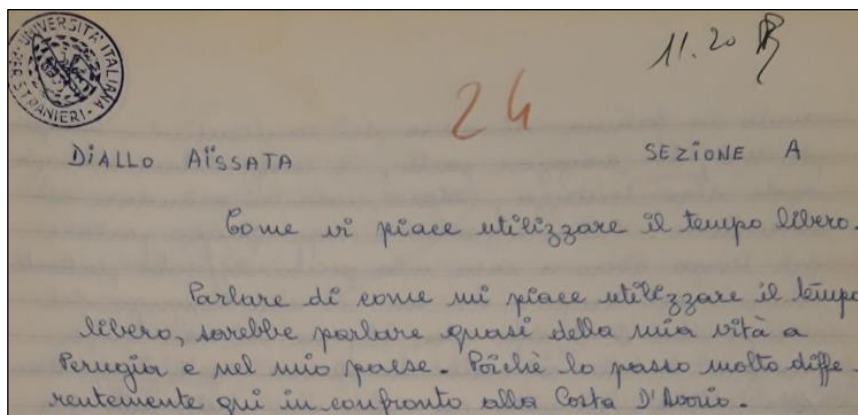 UNIVERSITÀ ITALIANA PER STRANIERI
11.20
24
DiALLO AÏSSATA SEZiONE A
Come vi piace utilizzare il tempo libero.
Parlare di come mi piace utilizzare il tempo
libero, sarebbe parlare quasi della mia vità a
Perugia e nel mio paese. Poichè lo passo molto diffe-
rentemente qui in confronto alla Costa D'Avorio.